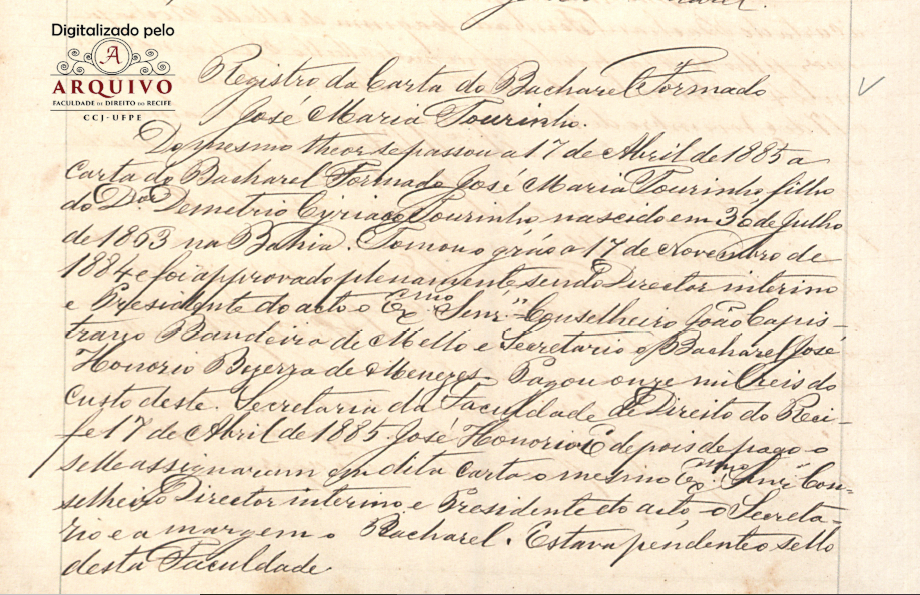 Digitalizado pelo
A
ARQUIVO
FACULDADE DE DIREITO DO RECIFE
CCJ-UFPE
Registro da Carta do Bacharel Formado
José Maria Tourinho.
Do mesmo theor se passou a 17 de Abril de 1885 a
Carta do Bacharel Formado José Maria Tourinho, filho
do Dor. Demetrio Cyriaco Tourinho nascido em 30 de Julho
de 1863 na Bahia. Tomou o gráo a 17 de Novembro de
1884 e foi approvado plenamente sendo Director interino
e Presidente do acto o Exmo. Senr. Conselheiro João Capis-
trano Bandeira de Mello e Secretario o Bacharel José
Honorio Bezerra de Menezes. Pagou onze mil reis do
custo deste. Secretaria da Faculdade de Direito do Reci-
fe 17 de Abril de 1885. José Honorio. E depois de pago o
sello assignaram em dita carta o mesmo Exmo. Senr. Con-
selheiro Director interino e Presidente do acto o Secreta-
rio e a margem o Bacharel. Estava pendente o sello
desta Faculdade